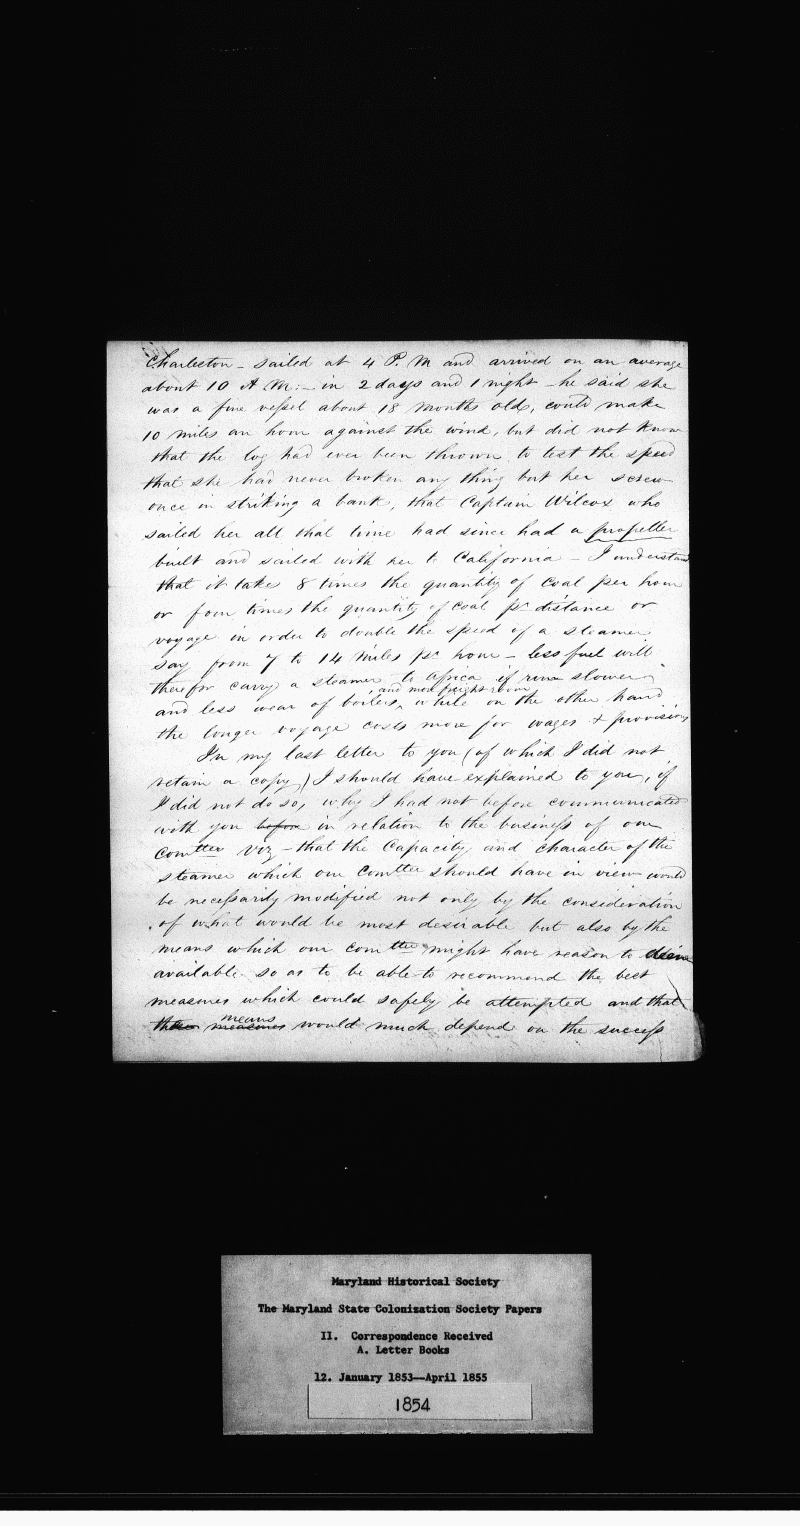 Charleston – sailed at 4 P. M and arrived on an average
about 10 A M: – in 2 days and 1 night – he said she
was a fine vessel about 18 months old, could make
10 miles an hour against the wind, but did not know
that the log had ever been thrown to test the speed
that she had never broken any thing but her screw
once in striking a bank, that Captain Wilcox who
sailed her all that time had since had a propeller
built and sailed with her to California – I understand
that it takes 8 times the quantity of coal per hour
or four times the quantity of coal pr distance or
voyage in order to double the speed of a steamer
say from 7 to 14 miles pr hour – less fuel will
therefor carry a steamer to Africa if run slower
, and more freight room
and less wear of boilers, while on the other hand
the longer voyage costs more for wages & provisions
In my last letter to you (of which I did not
retain a copy) I should have explained to you, if
I did not do so, why I had not before communicated
with you before in relation to the business of our
comttee viz – that the Capacity and character of the
steamer which our comttee should have in view would
be necessarily modified not only by the consideration
of what would be most desirable but also by the
means which our comttee might have reason to deem
available so as to be able to recommend the best
measures which could safely be attempted and that
means
these measures would much depend on the success
Maryland Historical Society
The Maryland State Colonization Society Papers
II. Correspondence Received
A. Letter Books
12. January 1853—April 1855
1854